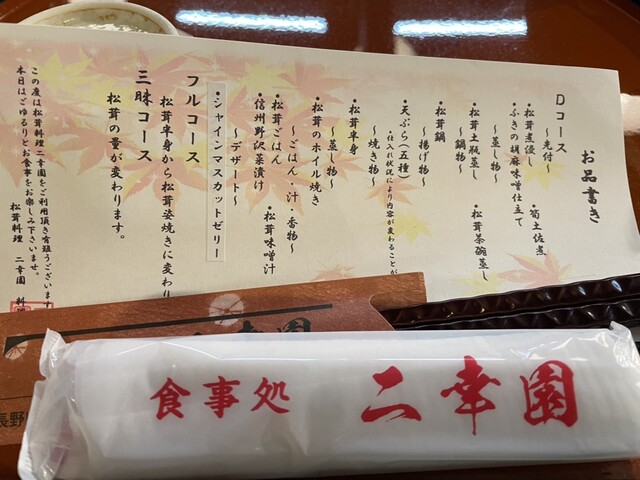 お品書き
Dコース
～先付～
・松茸煮浸し ・筍土佐煮
・ふきの胡麻味噌仕立て
～蒸し物～
・松茸土瓶蒸し ・松茸茶碗蒸し
～鍋物～
・松茸鍋
～揚げ物～
・天ぷら（五種）
・仕入れ状況により内容が変わることが
～焼き物～
・松茸半身
～蒸し物～
・松茸のホイル焼き
～ごはん・汁・香物～
・松茸ごはん ・松茸味噌汁
・信州野沢菜漬け
～デザート～
・シャインマスカットゼリー
フルコース
松茸半身から松茸姿焼きに変わり
三昧コース
松茸の量が変わります。
この度は松茸料理二幸園をご利用頂き有難うございます
本日はごゆるりとお食事をお楽しみ下さいませ。
松茸料理 二幸園
幸園
長野
食事処 二幸園